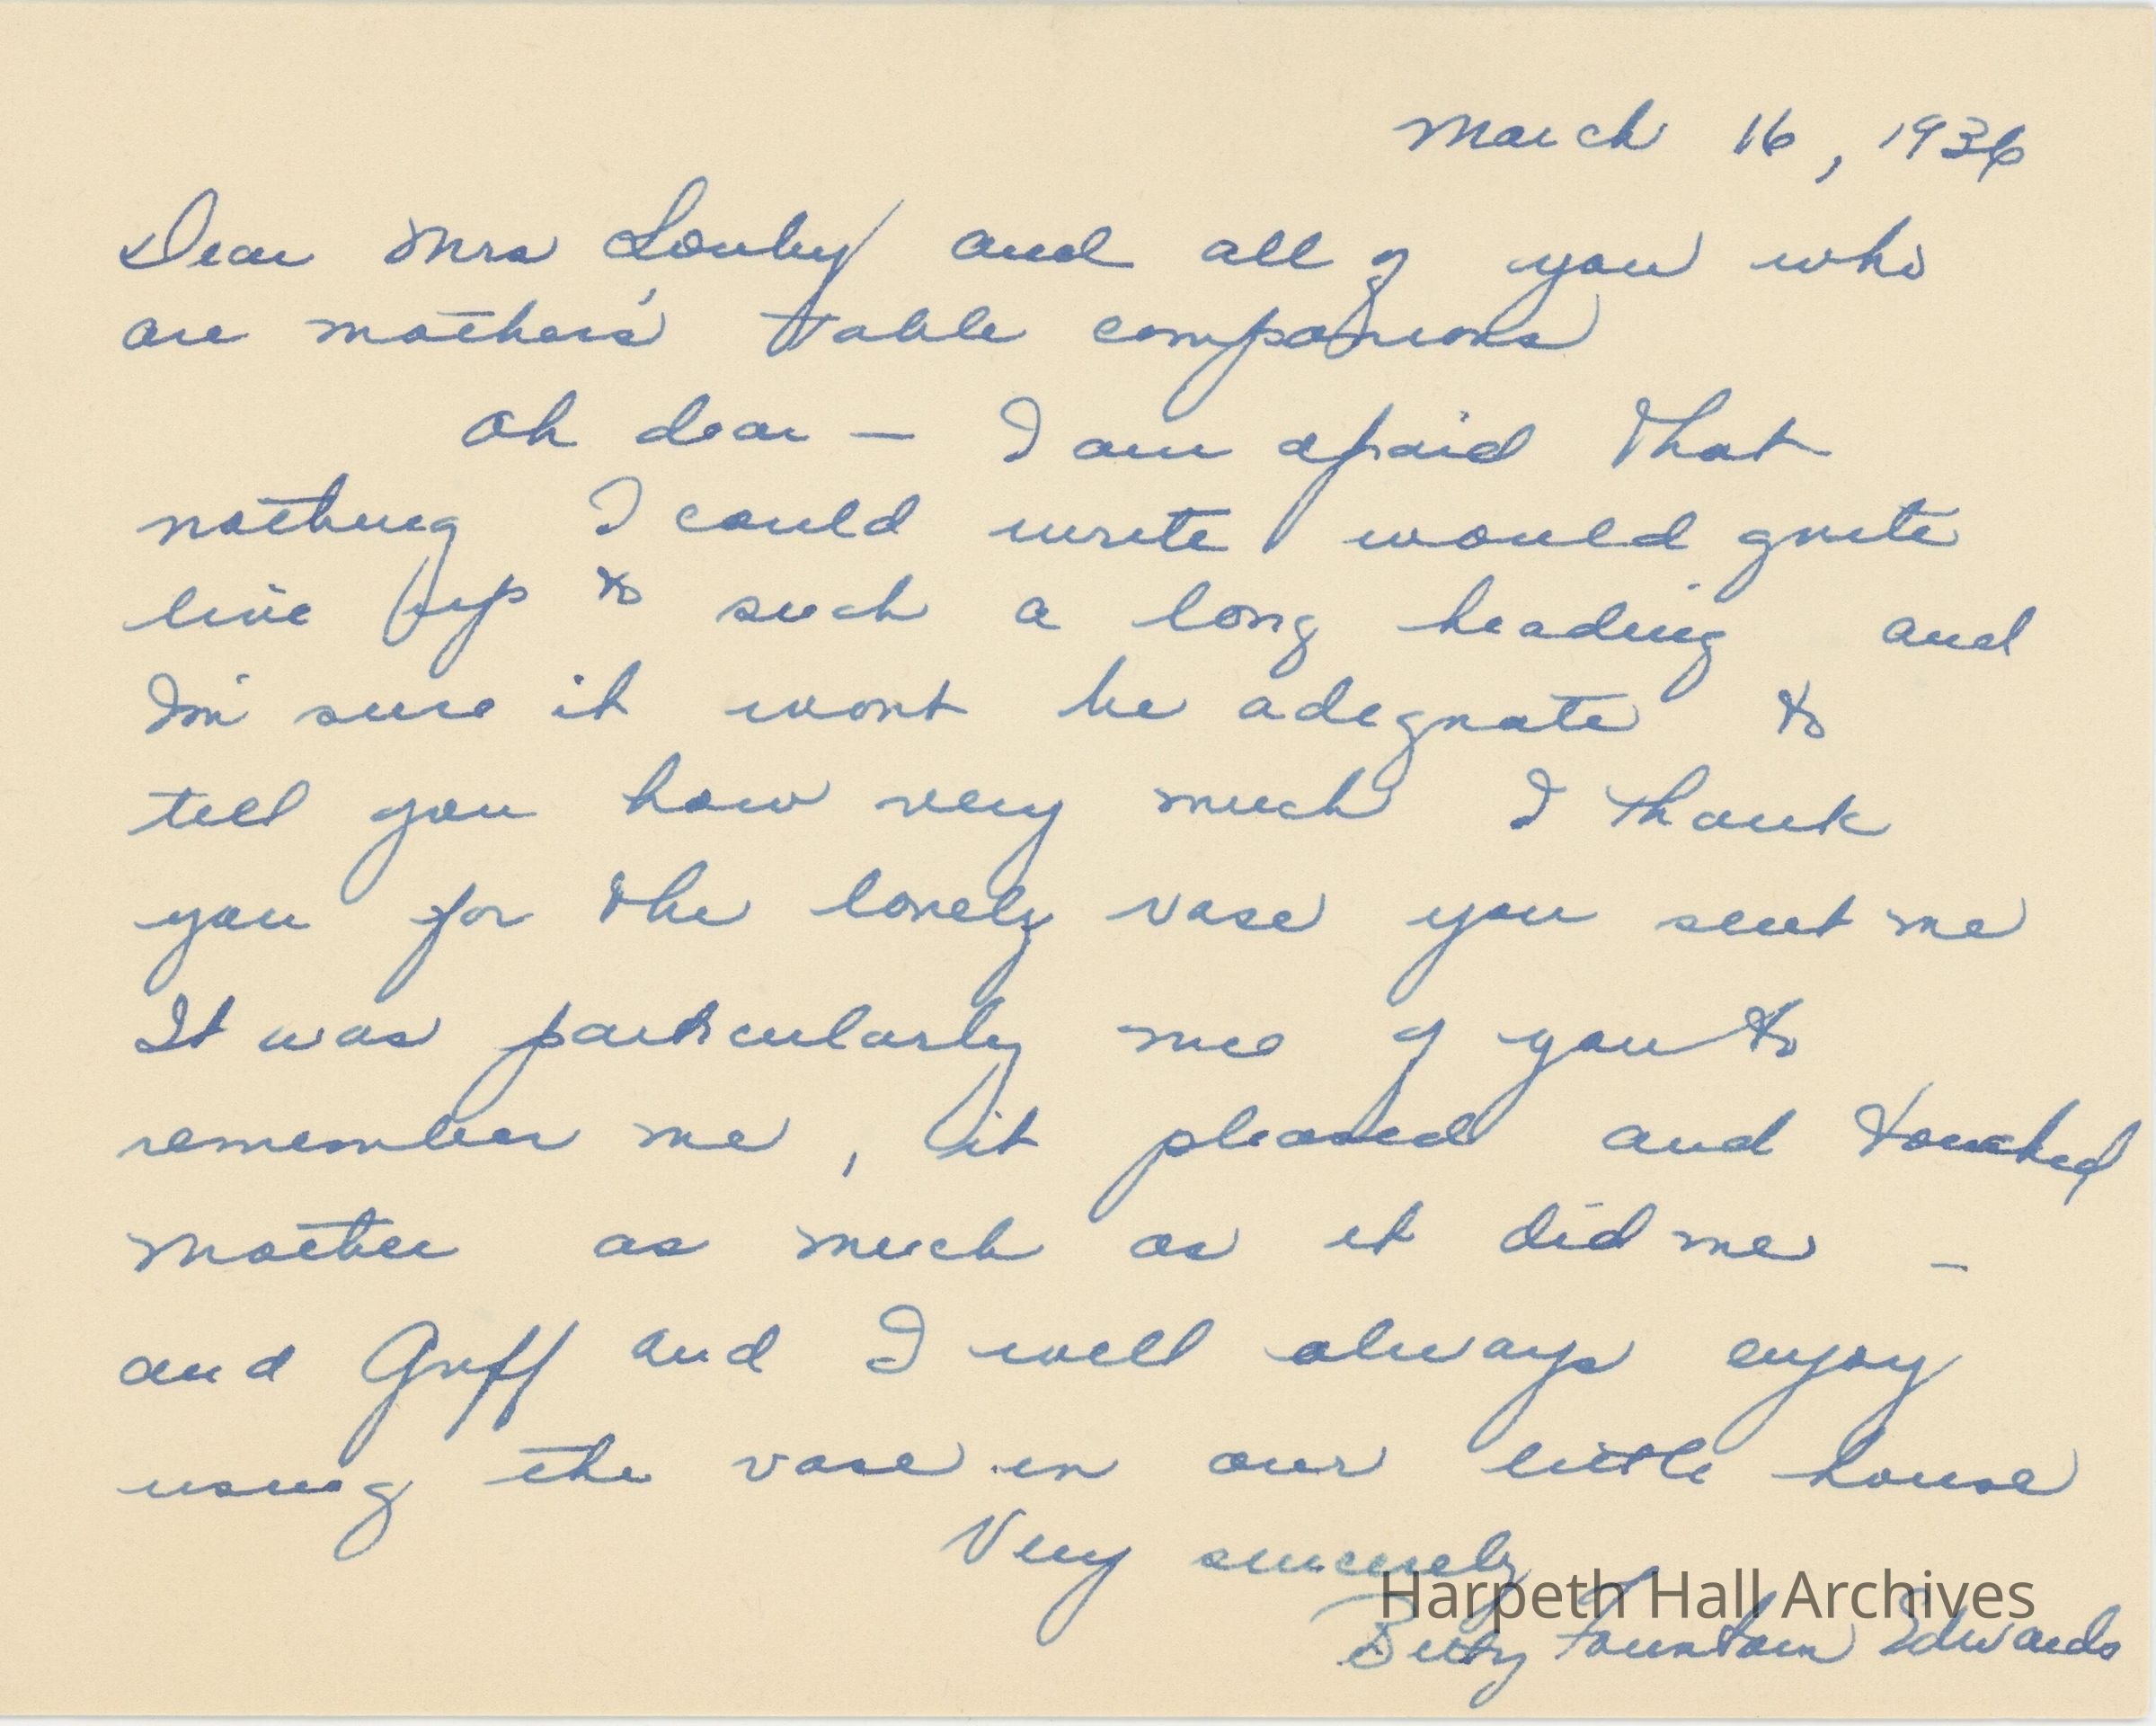 March 16, 1936
Dear Mrs Souby and all of you who
are mothers' table companions
Oh dear — I am afraid that
nothing I could write would quite
live up to such a long heading and
I'm sure it wont be adequate to
tell you how very much I thank
you for the lovely vase you sent me
It was particularly nice of you to
remember me, it pleased and touched
mother as much as it did me –
and Griff and I will always enjoy
using the vase in our little house
Very sincerely
Harpeth Hall Archives
Betty Fountain Edwards